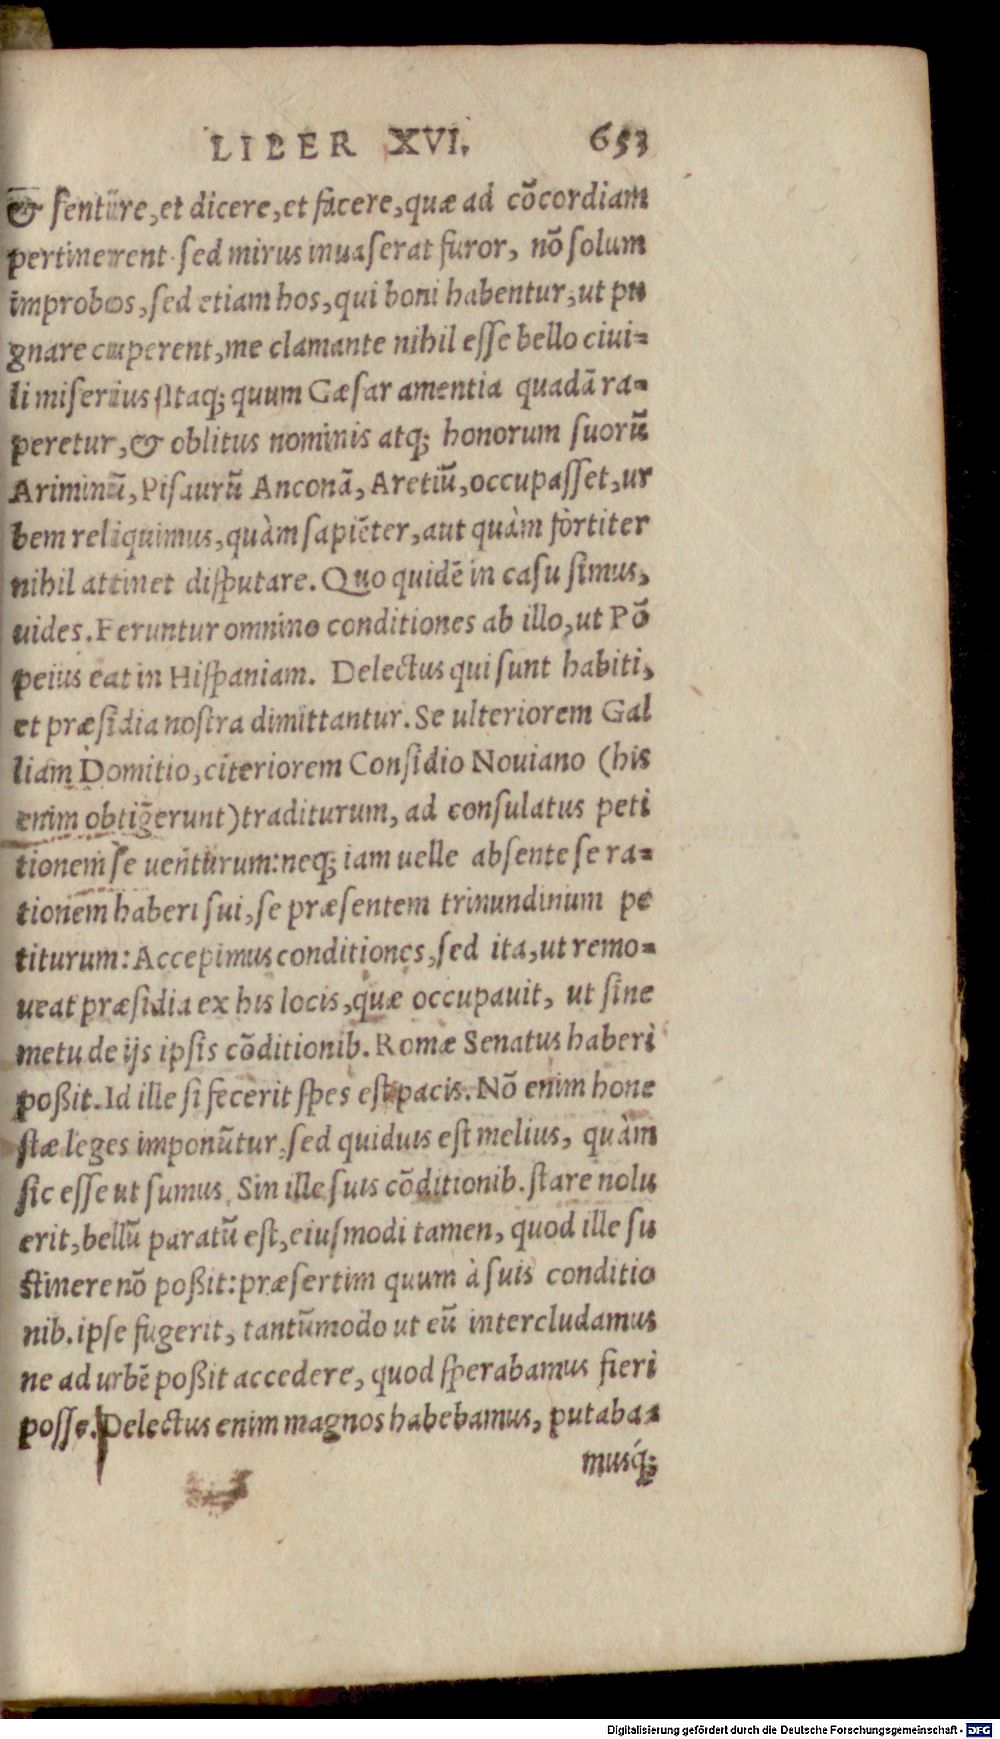 LIBER XVI. 653
& sentire, et dicere, et facere, quæ ad cõcordiam
pertinerent. sed mirus inuaserat furor, nõ solum
improbos, sed etiam hos, qui boni habentur, ut pu
gnare cuperent, me clamante nihil esse bello ciui=
li miserius. Itaq; quum Cæsar amentia quadã ra=
peretur, & oblitus nominis atq; honorum suorũ
Ariminũ, Pisaurũ Anconã, Aretiũ, occupasset, ur
bem reliquimus, quàm sapiẽter, aut quàm fortiter
nihil attinet disputare. Quo quidẽ in casu simus,
uides. Feruntur omnino conditiones ab illo, ut Põ
peius eat in Hispaniam. Delectus qui sunt habiti,
et præsidia nostra dimittantur. Se ulteriorem Gal
liam Domitio, citeriorem Considio Nouiano (his
enim obtigerunt) traditurum, ad consulatus peti
tionem se uenturum: neq; iam uelle absente se ra=
tionem haberi sui, se præsentem trinundinum pe
titurum: Accepimus conditiones, sed ita, ut remo=
ueat præsidia ex his locis, quæ occupauit, ut sine
metu de ijs ipsis cõditionib. Romæ Senatus haberi
poßit. Id ille si fecerit spes est pacis. Nõ enim hone
stæ leges imponũtur, sed quiduis est melius, quàm
sic esse ut sumus. Sin ille suis cõditionib. stare nolu
erit, bellũ paratũ est, eiusmodi tamen, quod ille su
stinere nõ poßit: præsertim quum à suis conditio
nib. ipse fugerit, tantũmodo ut eũ intercludamus
ne ad urbẽ poßit accedere, quod sperabamus fieri
posse. Delectus enim magnos habebamus, putaba=
musq́;
Digitalisierung gefördert durch die Deutsche Forschungsgemeinschaft - DFG